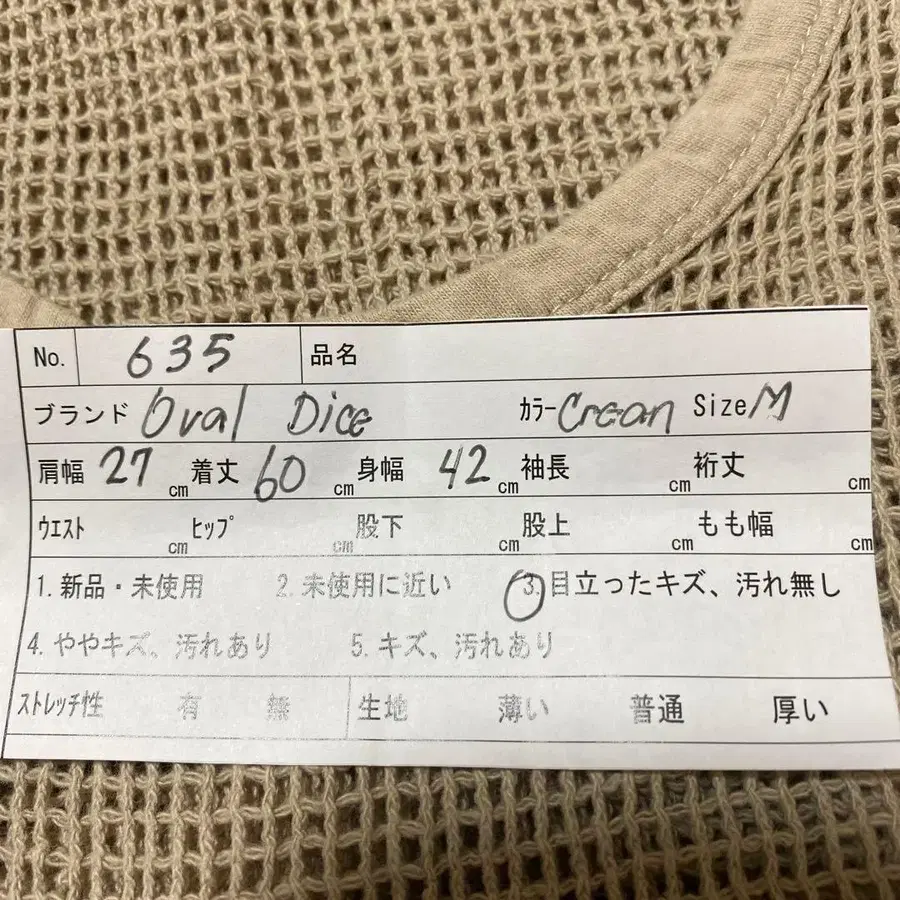 No. 635 品名
ブランド Oval Dice カラー Crean Size M
肩幅 27 cm 着丈 60 cm 身幅 42 cm 袖長 cm 裄丈 cm
ウエスト cm ヒップ cm 股下 cm 股上 cm もも幅 cm
1. 新品・未使用 2. 未使用に近い 3. 目立ったキズ、汚れ無し
4. ややキズ、汚れあり 5. キズ、汚れあり
ストレッチ性 有 無 生地 薄い 普通 厚い